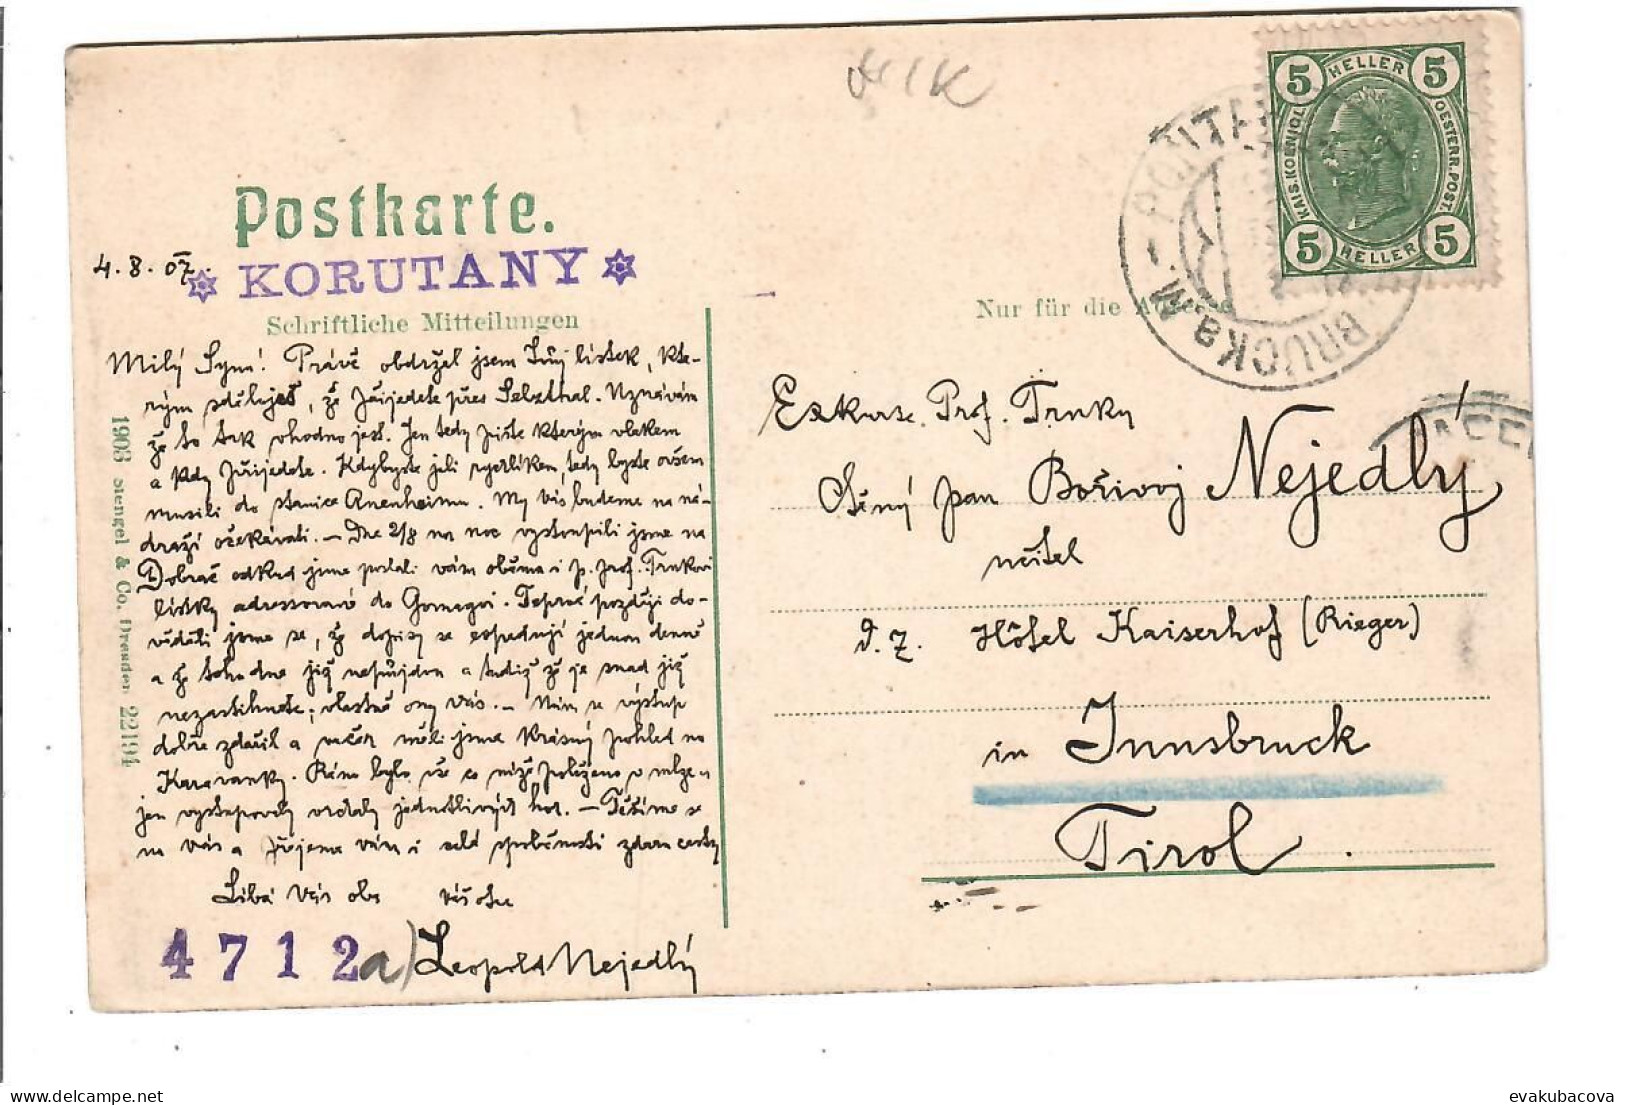 Postkarte.
4. 8. 07.
KORUTANY
Schriftliche Mitteilungen
Milý Synu! Právě obdržel jsem Tvůj lístek, kte-
rým sděluješ, že přijedete přes Selzthal. Uznávám
že to tak vhodno jest. Jen tedy pište kterým vlakem
a kdy přijedete. Kdybyste jeli rychlíkem, tedy byste ovšem
musili do stanice Anenheimu. My vás budeme na ná-
draží očekávati. – Dne 2/8 na noc vystoupili jsme na
Dobrač odkud jsme poslali vám oběma i p. prof. Trnkovi
lístky adressované do Gomagoi. Teprvé později do-
věděli jsme se, že dopisy se expedují jednou denně
a že toho dne již nepůjdou a tudíž že je snad již
nezastihnete; vlastně ony Vás. – Nám se výstup
dobře zdařil a večer měli jsme krásný pohled na
Karavanky. Ráno bylo vše co níže položeno v mlze a
jen vystupovaly vrcholy jednotlivých hor. – Těšíme se
na vás a přejeme vám i celé společnosti zdar cesty
Líbá Vás oba váš otec
Leopold Nejedlý
4 7 1 2 a)
1906 Stengel & Co. Dresden 22194
KAIS. KOENIGL. OESTERR. POST.
5 HELLER 5
5 HELLER 5
BRUCK a M.
Nur für die Adresse
Exkurse Prof. Trnky
Ctěný pan Bořivoj Nejedlý
učitel
d. Z. Hôtel Kaiserhof (Rieger)
in Innsbruck
Tirol.
delcampe.net
evakubacova